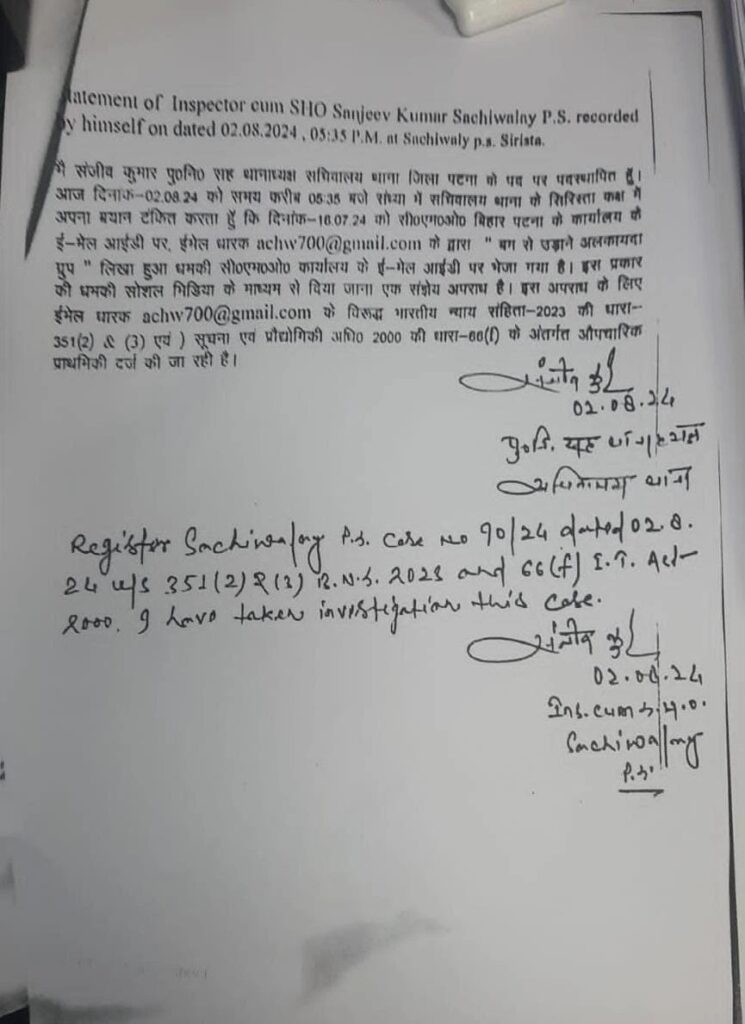 tatement of Inspector cum SHO Sanjeev Kumar Sachiwalay P.S. recorded
by himself on dated 02.08.2024 , 05:35 P.M. at Sachiwaly p.s. Sirista.
मै संजीव कुमार पु०नि० सह थानाध्यक्ष सचिवालय थाना जिला पटना के पद पर पदस्थापित हूँ।
आज दिनांक-02.08.24 को समय करीब 05:35 बजे संध्या में सचिवालय थाना के सिरिस्ता कक्ष में
अपना बयान टंकित करता हूँ कि दिनांक-16.07.24 को सी०एम०ओ० बिहार पटना के कार्यालय के
ई-मेल आईडी पर, ईमेल धारक achw700@gmail.com के द्वारा " बम से उड़ाने अलकायदा
ग्रुप " लिखा हुआ धमकी सी०एम०ओ० कार्यालय के ई-मेल आईडी पर भेजा गया है। इस प्रकार
की धमकी सोशल मिडिया के माध्यम से दिया जाना एक संज्ञेय अपराध है। इस अपराध के लिए
ईमेल धारक achw700@gmail.com के विरूद्ध भारतीय न्याय संहिता-2023 की धारा-
351(2) & (3) एवं ) सूचना एवं प्रौद्योगिकी अधि० 2000 की धारा-66(f) के अंतर्गत औपचारिक
प्राथमिकी दर्ज की जा रही है।
संजीव कुमार
02.08.24
पु०नि. सह थानाध्यक्ष
सचिवालय थाना
Register Sachiwalay P.S. Case No 90/24 dated 02.8.
24 u/s 351(2) & (3) B.N.S. 2023 and 66(f) I.T. Act-
2000. I have taken investigation this case.
संजीव कुमार
02.08.24
Ins. cum S.H.O.
Sachiwalay
P.S.